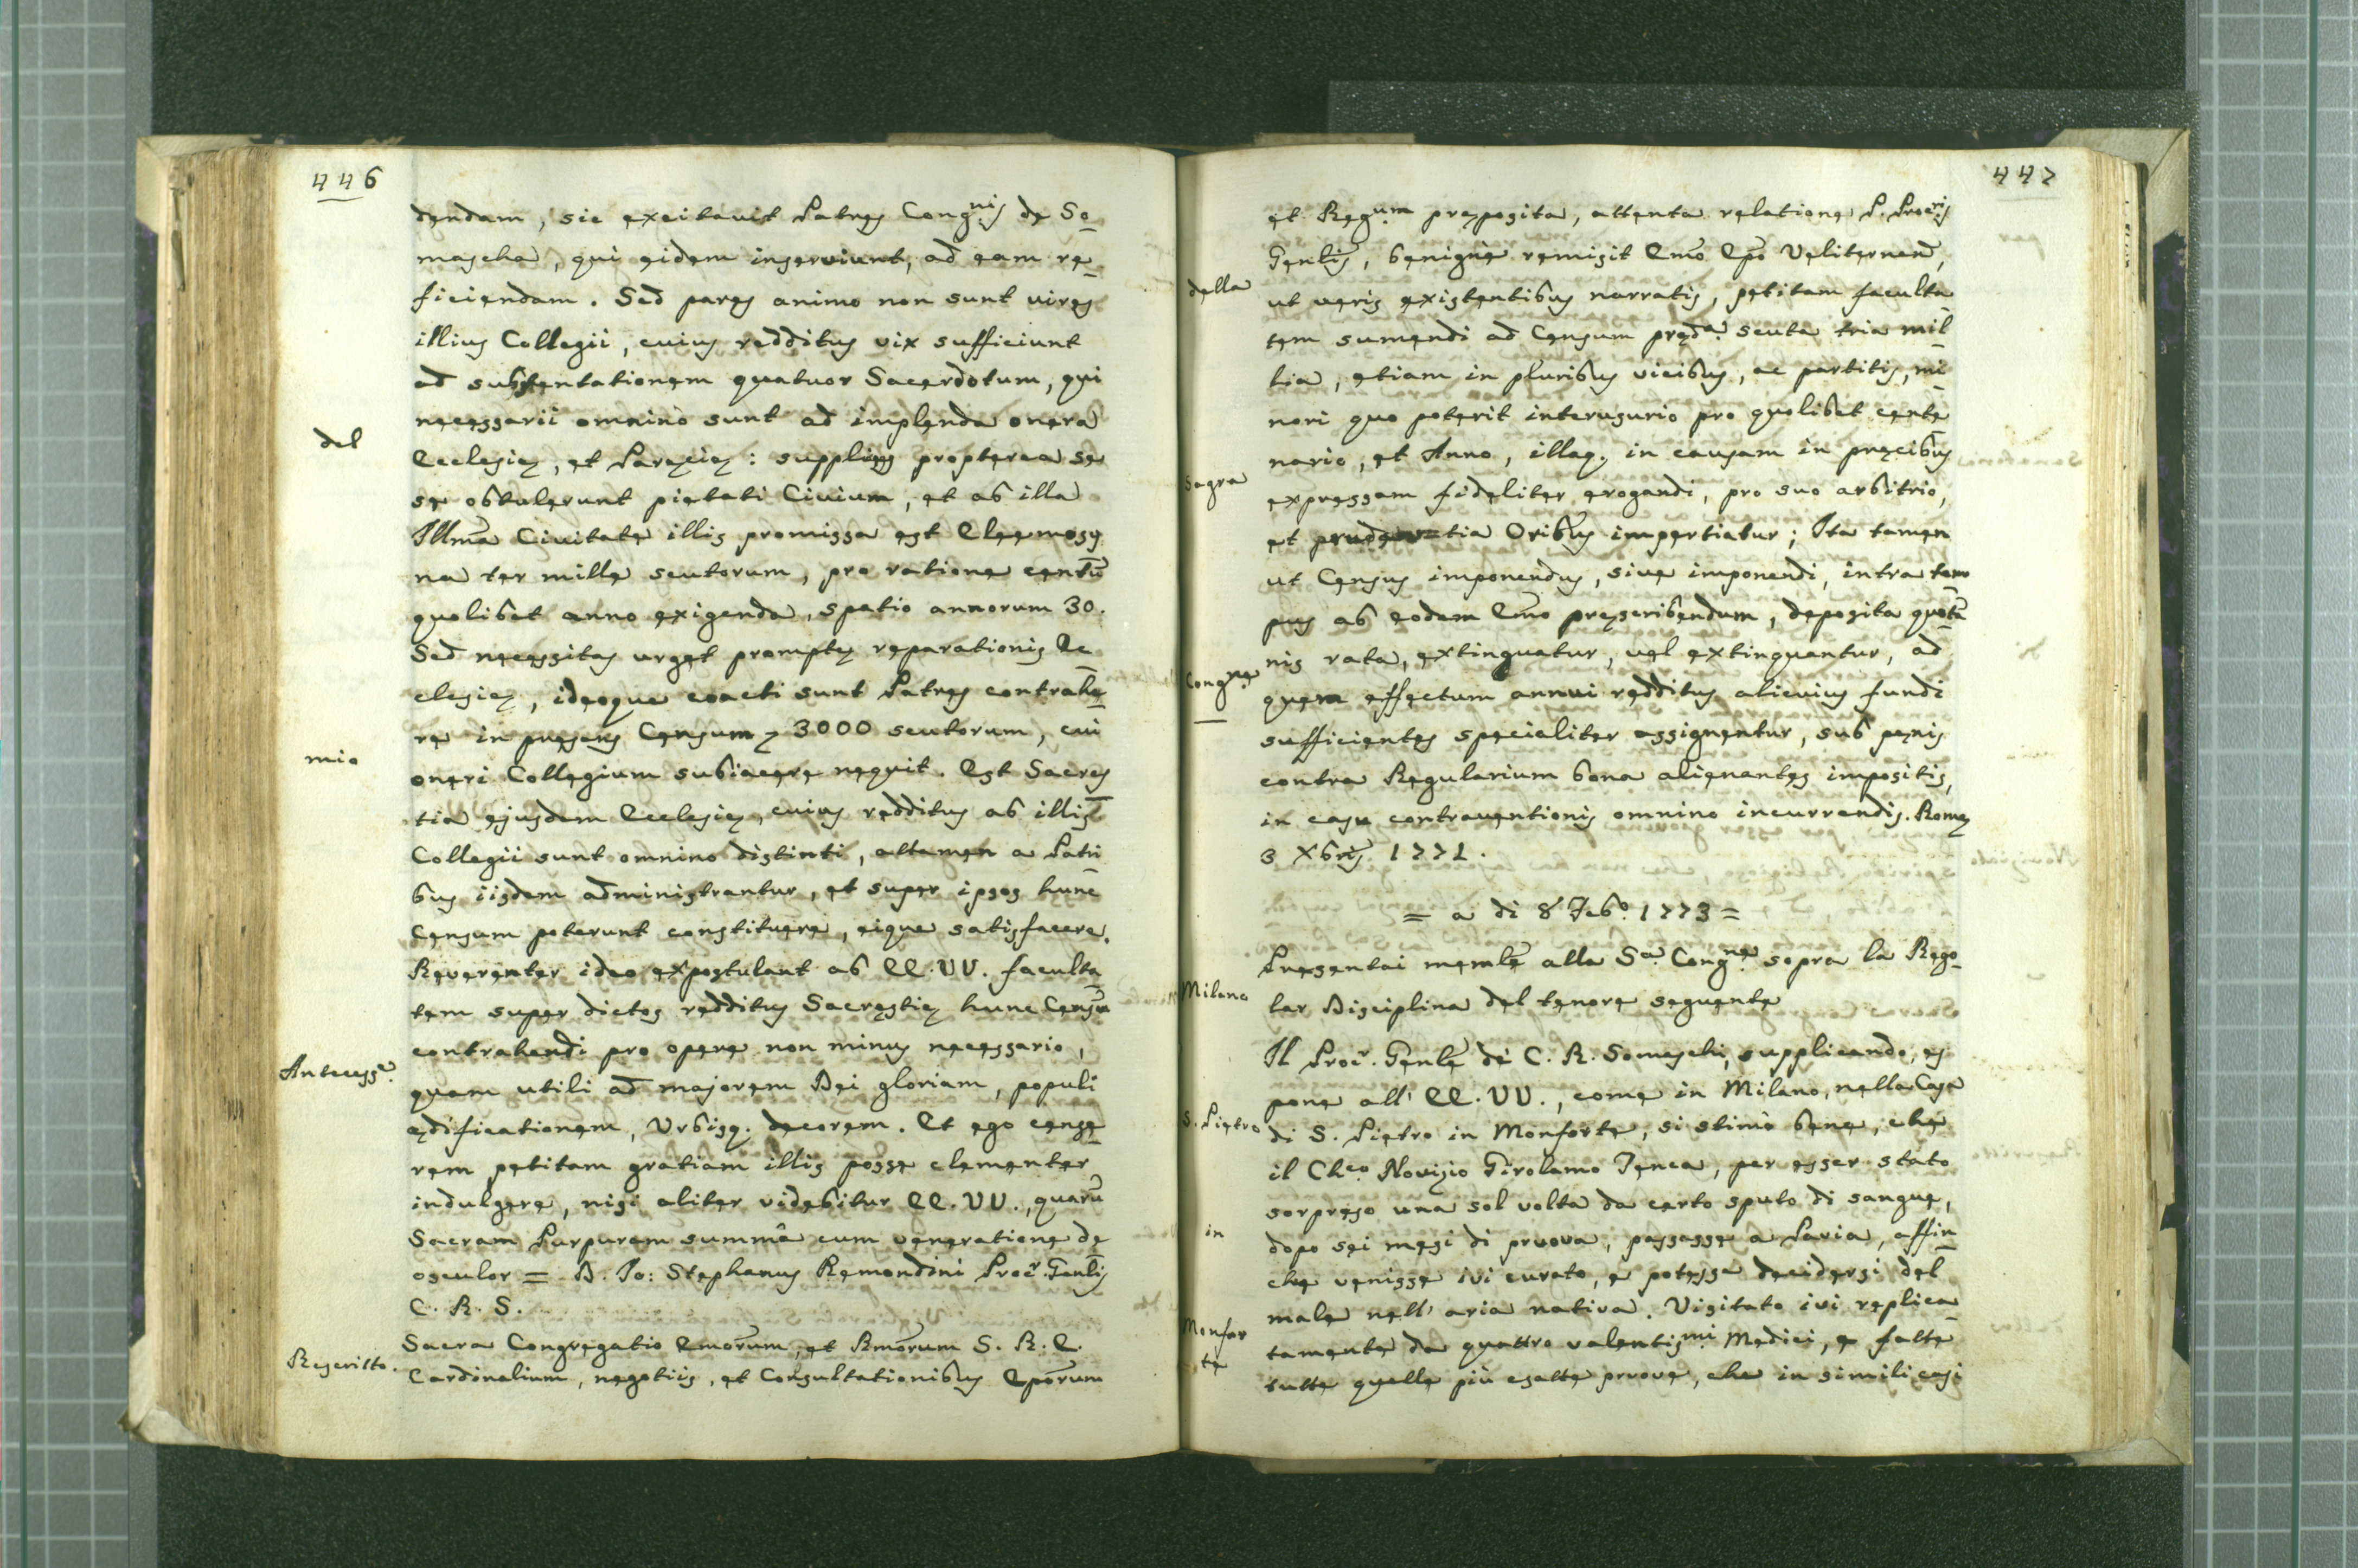 446
dendam, sic excitavit Patres Cong.nis de So_
mascha, qui eidem inserviunt, ad eam re_
ficiendam. Sed pares animo non sunt vires
illius Collegii, cuius redditus vix sufficiunt
ad substentationem quatuor Sacerdotum, qui
necessarii omninò sunt ad implenda onera
del
Ecclesiæ, et Paręciæ: supplices propterea se
se obtulerunt pietati Civium, et ab illa
Illmã Civitate illis promissa est Eleemosy
na ter mille scutorum, pro ratione centũ
quolibet anno exigenda, spatio annorum 30.
Sed necessitas urget promptæ reparationis Ec
clesiæ, ideoque coacti sunt Patres contrahe_
re in præsens Censum 3000 scutorum, cui
mio
oneri Collegium subiacere nequit. Est Sacręs
tia ejusdem Ecclesiæ, cuius redditus ab illis
Collegii sunt omnino distinti, attamen a Patri_
bus iisdem administrantur, et super ipsos hunc
Censum poterunt constituere, eique satisfacere.
Reverenter ideo expostulant ab EE. VV. faculta_
tem super dictos redditus Sacręstiæ hunc Censũ
contrahendi pro opere non minus necessario,
Antecess.e
quam utili ad majorem Dei gloriam, populi
ędificationem, Urbisq. decorem. Et ego cense_
rem petitam gratiam illis posse clementer
indulgere, nisi aliter videbitur EE. VV., quarũ
Sacram Purpuram summâ cum veneratione de
osculor = D. Jo: Stephanus Remondini Procr. Genlis
C. R. S.
Rescritto.
Sacra Congregatio Emõrum, et Rmõrum S. R. E.
Cardinalium, negotiis, et Consultationibus Epõrum
447
et Reg.um pręposita, attenta relatione P. Proc.ris
Genlis, benignè remisit Emõ Epõ Veliternen,
della
ut veris existentibus narratis, petitam faculta_
tem sumendi ad Censum pręd.a scuta tria mil_
lia, etiam in pluribus vicibus, ac partitis, mi_
nori quo poterit interusurio pro quolibet cente
nario, et Anno, illaq. in causam in pręcibus
Sagra
expressam fideliter erogandi, pro suo arbitrio,
et prudentia Oribus impertiatur; Ita tamen
ut Census imponendus, sive imponendi, intra tem
pus ab eodem Emõ pręscribendum, deposita quotã
nis rata, extinguatur, vel extinguantur, ad
Cong.ne
quem effectum annui redditus alicuius fundi
sufficientes specialiter assignentur, sub pęnis
contra Regularium bona alienantes impositis,
in casu contraventionis omnino incurrendis. Romę
3 Xbris 1771.
= a di 8 Feb.o 1773 =
Presentai memle alla S.a Cong.ne sopra la Rego_
Milano
lar Disciplina del tenore seguente
Il Procr. Genle de' C. R. Somaschi, supplicando, es
pone all' EE. VV., come in Milano, nella Casa
S. Pietro
di S. Pietro in Monforte, si stimò bene, che
il Ch.co Novizio Girolamo Tenca, per esser stato
sorpreso una sol volta da certo sputo di sangue,
in
dopo sei mesi di pruova, passasse a Pavia, affin_
che venisse ivi curato, e potesse decidersi del
male nell' aria nativa. Visitato ivi replica_
Monfor
tamente da quattro valentis.mi Medici, e fatte
te
tutte quelle più esatte pruove, che in simili casi